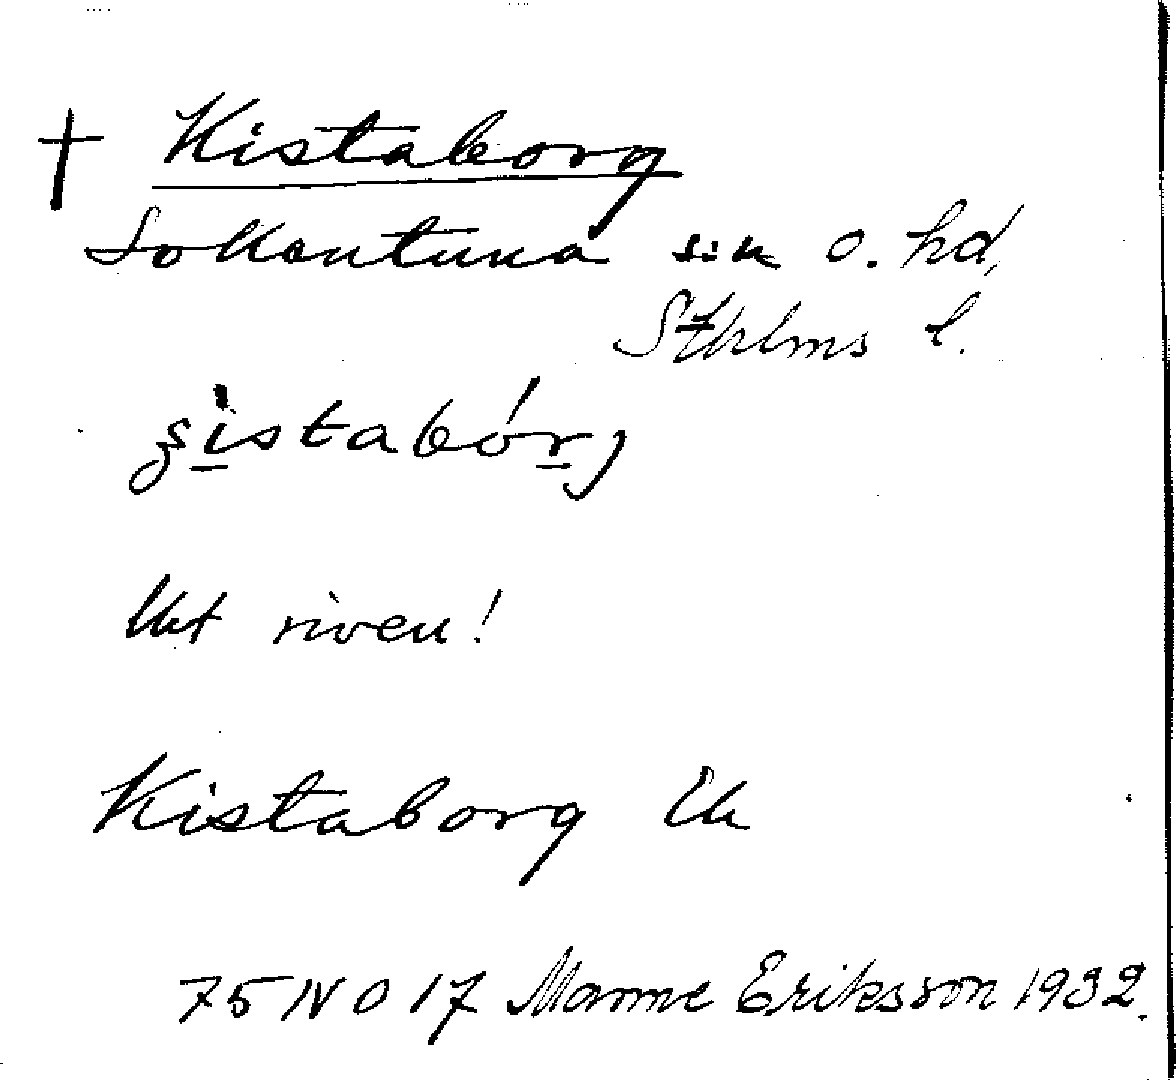 † Kistaborg
Sollentuna skn o. hd,
Sthlms l.
Ukt riven!
Kistaborg Uk
75 NO 17 Manne Eriksson 1932.